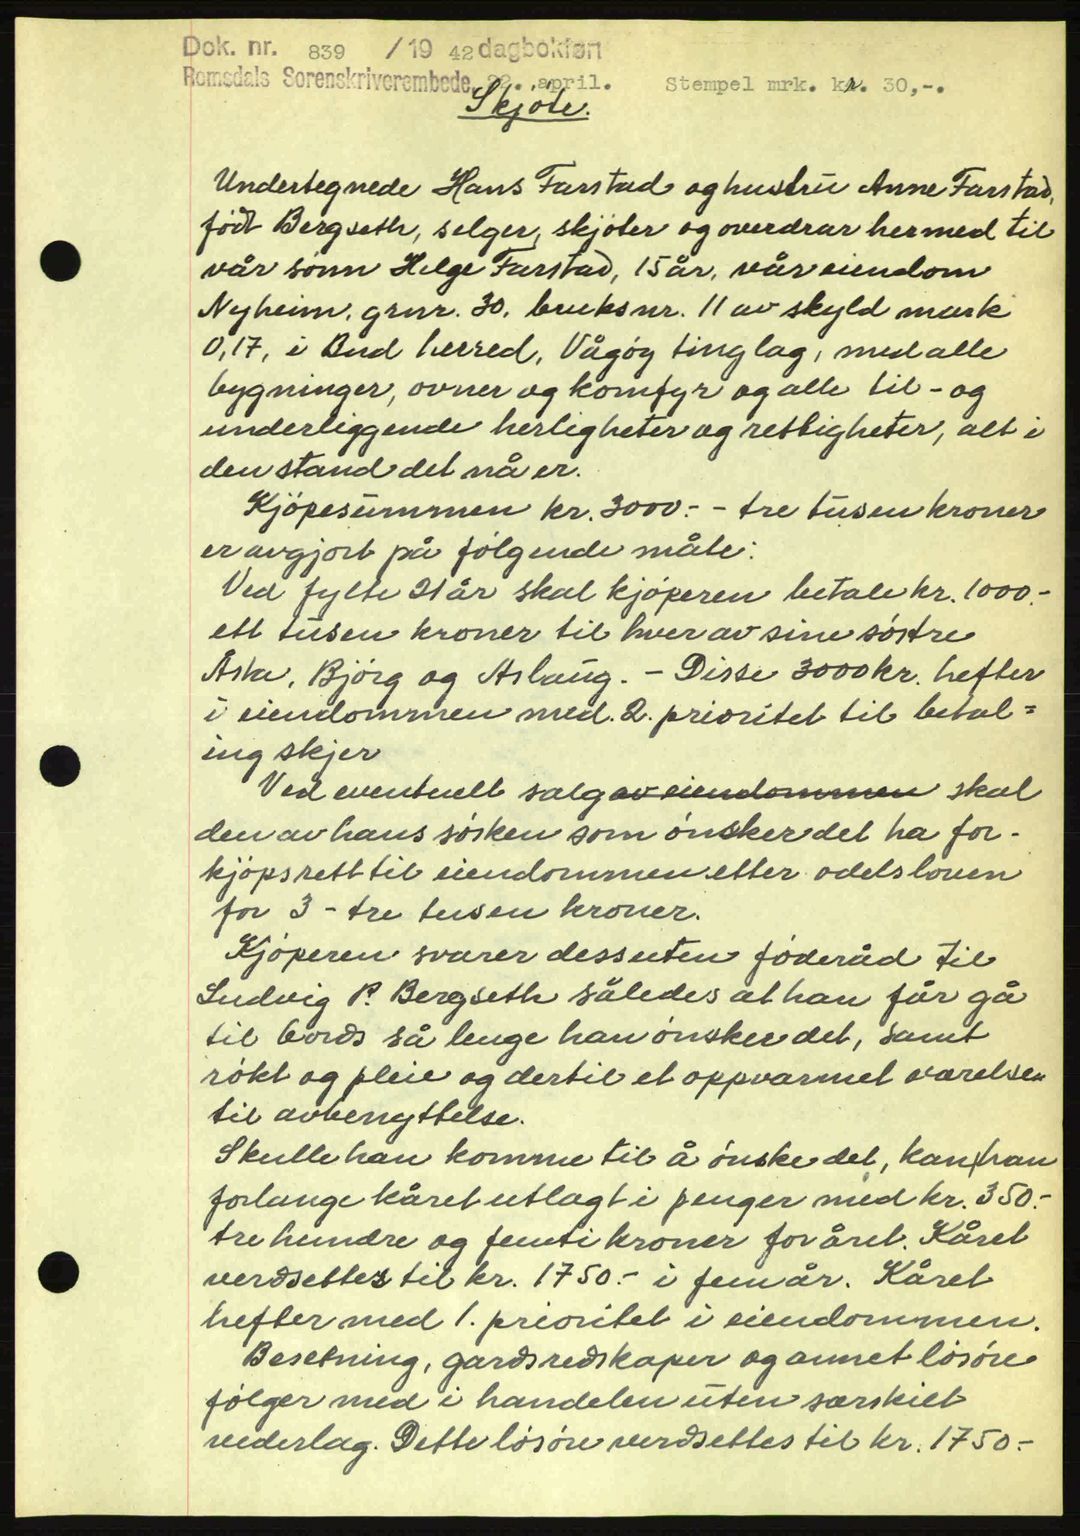 Dok. nr. 839 / 19 42 dagbokført
Romsdals Sorenskriverembede, 22. april. Stempel mrk. kr. 30,-.
Skjöte.
Undertegnede Hans Farstad og hustru Anne Farstad,
födt Bergseth, selger, skjöter og overdrar hermed til
vår sönn Helge Farstad, 15 år, vår eiendom
Nyheim, grnr. 30, bruksnr. 11 av skyld mark
0,17, i Bud herred, Vågöy tinglag, med alle
bygninger, ovner og komfyr og alle til- og
underliggende herligheter og rettigheter, alt i
den stand det nå er.
Kjöpesummen kr. 3000.- - tre tusen kroner
er avgjort på fölgende måte:
Ved fylte 21 år skal kjöperen betale kr. 1000.-
ett tusen kroner til hver av sine söstre
Åsta, Björg og Aslaug. - Disse 3000 kr. hefter
i eiendommen med 2. prioritet til betal=
ing skjer
Ved eventuelt salg av eiendommen skal
den av hans sösken som önsker det ha for-
kjöpsrett til eiendommen etter odelsloven
for 3 - tre tusen kroner.
Kjöperen svarer dessuten föderåd til
Ludvig P. Bergseth således at han får gå
til bords så lenge han önsker det, samt
rökt og pleie og dertil et oppvarmet værelse
til avbenyttelse.
Skulle han komme til å önske det, kan han
forlange kåret utlagt i penger med kr. 350.-
tre hundre og femti kroner for året. Kåret
verdsettes til kr. 1750.- i fem år. Kåret
hefter med 1. prioritet i eiendommen.
Besetning, gardsredskaper og annet lösöre
fölger med i handelen uten særskilt
vederlag. Dette lösöre verdsettes til kr. 1750.-